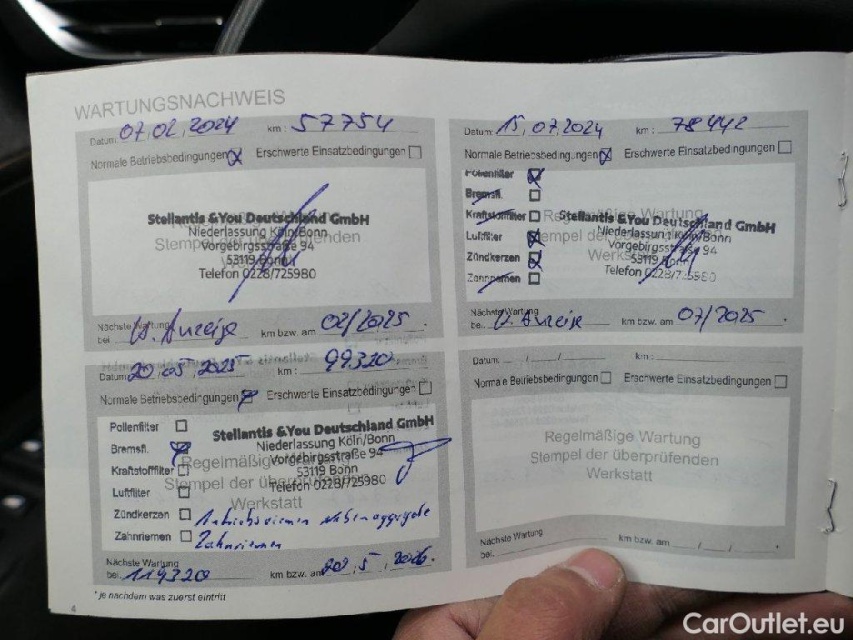 WARTUNGSNACHWEIS
Datum: 07.02.2024 km: 57754
Normale Betriebsbedingungen Erschwerte Einsatzbedingungen
Stellantis &You Deutschland GmbH
Niederlassung Köln/Bonn
Vorgebirgsstraße 94
53119 Bonn
Telefon 0228/725980
Nächste Wartung
bei: lt. Anzeige km bzw. am 02/2025
Datum: 15.07.2024 km: 78442
Normale Betriebsbedingungen Erschwerte Einsatzbedingungen
Pollenfilter
Bremsfl.
Kraftstofffilter
Luftfilter
Zündkerzen
Zahnriemen
Regelmäßige Wartung
Stellantis &You Deutschland GmbH
Niederlassung Köln/Bonn
Vorgebirgsstraße 94
53119 Bonn
Telefon 0228/725980
Nächste Wartung
bei: lt. Anzeige km bzw. am 07/2025
Datum: 20.05.2025 km: 99320
Normale Betriebsbedingungen Erschwerte Einsatzbedingungen
Pollenfilter
Bremsfl.
Kraftstofffilter
Luftfilter
Zündkerzen
Zahnriemen
Stellantis &You Deutschland GmbH
Niederlassung Köln/Bonn
Vorgebirgsstraße 94
53119 Bonn
Telefon 0228/725980
Regelmäßige
Stempel der
Werkstatt
Antriebsriemen Nebenaggregate
Zahnriemen
Nächste Wartung
bei: 119320 km bzw. am 20.5.2026
Datum: / / km:
Normale Betriebsbedingungen Erschwerte Einsatzbedingungen
Regelmäßige Wartung
Stempel der überprüfenden
Werkstatt
Nächste Wartung
bei: km bzw. am / / .
* je nachdem was zuerst eintritt
4
CarOutlet.eu